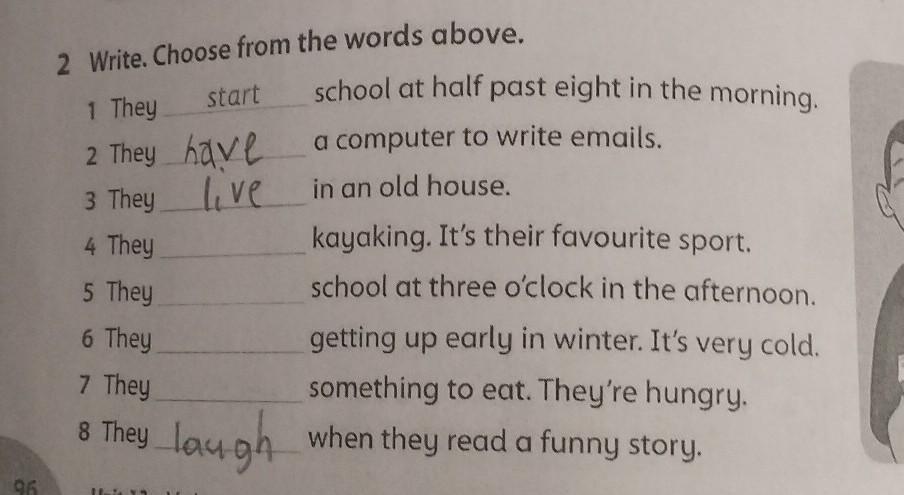 2 Write. Choose from the words above.
1 They start school at half past eight in the morning.
2 They have a computer to write emails.
3 They live in an old house.
4 They ____________ kayaking. It's their favourite sport.
5 They ____________ school at three o'clock in the afternoon.
6 They ____________ getting up early in winter. It's very cold.
7 They ____________ something to eat. They're hungry.
8 They laugh when they read a funny story.
96